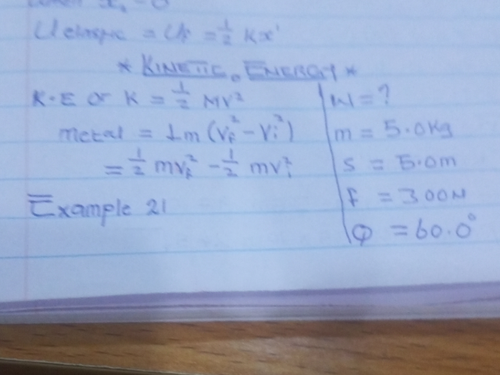 = U = ½ Kx²
* KINETIC ENERGY *
K.E or K = ½ MV²
= ½m (Vf² - Vi²)
= ½ mVf² - ½ mVi²
Example 21
W = ?
m = 5.0kg
s = 5.0m
F = 300N
Φ = 60.0°